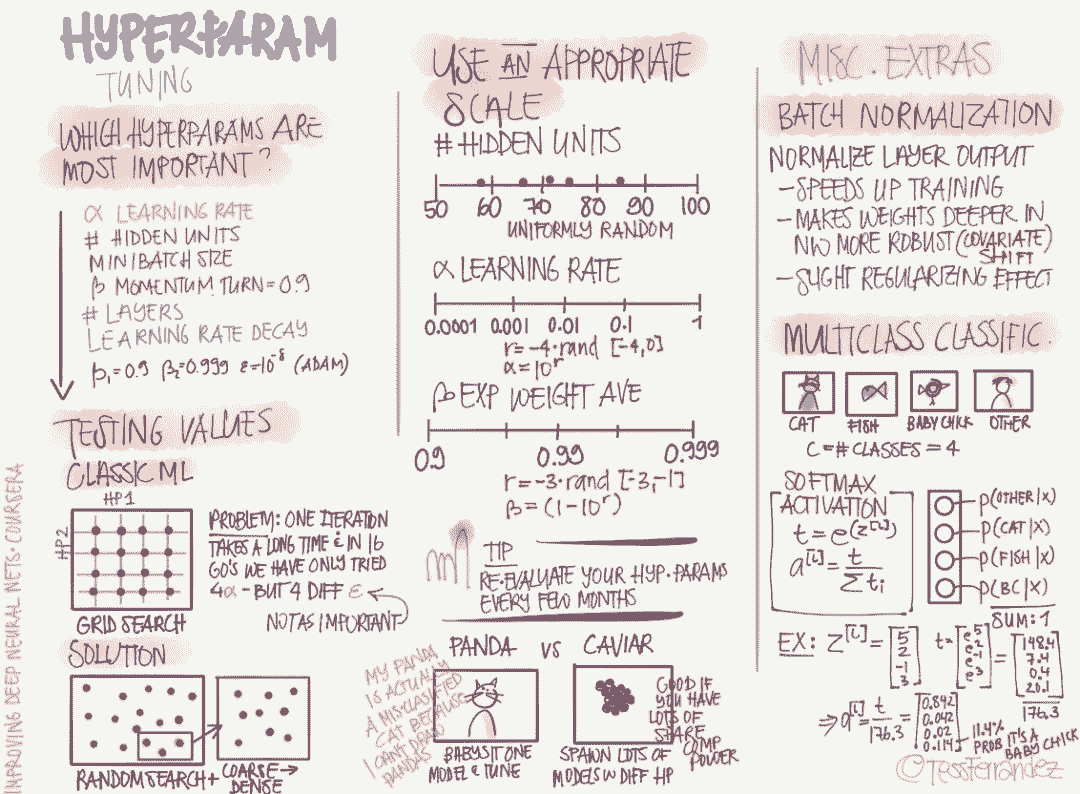 HYPERPARAM
TUNING
WHICH HYPERPARAMS ARE
MOST IMPORTANT?
α LEARNING RATE
# HIDDEN UNITS
MINIBATCH SIZE
β MOMENTUM TURN = 0.9
# LAYERS
LEARNING RATE DECAY
β₁=0.9 β₂=0.999 ε=10⁻⁸ (ADAM)
TESTING VALUES
CLASSIC ML
HP1
HP2
GRID SEARCH
PROBLEM: ONE ITERATION
TAKES A LONG TIME & IN 16
GO'S WE HAVE ONLY TRIED
4α - BUT 4 DIFF ε
NOT AS IMPORTANT
SOLUTION
RANDOM SEARCH +
COARSE →
DENSE
IMPROVING DEEP NEURAL NETS · COURSERA
USE AN APPROPRIATE
SCALE
# HIDDEN UNITS
50 60 70 80 90 100
UNIFORMLY RANDOM
α LEARNING RATE
0.0001 0.001 0.01 0.1 1
r = -4·rand [-4,0]
α = 10^r
β EXP WEIGHT AVE
0.9 0.99 0.999
r = -3·rand [-3,-1]
β = (1-10^r)
TIP
RE-EVALUATE YOUR HYP·PARAMS
EVERY FEW MONTHS
PANDA VS CAVIAR
MY PANDA
IS ACTUALLY
A MISCLASSIFIED
CAT BECAUSE
I CAN'T DRAW
PANDAS
BABYSIT ONE
MODEL & TUNE
GOOD IF
YOU HAVE
LOTS OF
SHARE
COMP
POWER
SPAWN LOTS OF
MODELS W DIFF HP
MISC. EXTRAS
BATCH NORMALIZATION
NORMALIZE LAYER OUTPUT
- SPEEDS UP TRAINING
- MAKES WEIGHTS DEEPER IN
NW MORE ROBUST (COVARIATE)
SHIFT
- SLIGHT REGULARIZING EFFECT
MULTICLASS CLASSIFIC.
CAT FISH BABY CHICK OTHER
C = # CLASSES = 4
SOFTMAX
ACTIVATION
t = e^(z^[L])
a^[L] = t / Σ tᵢ
P(OTHER|X)
P(CAT|X)
P(FISH|X)
P(BC|X)
SUM: 1
EX: z^[L] = [5 2 -1 3] t = [e^5 e^2 e^-1 e^3] = [148.4 7.4 0.4 20.1]
176.3
⇒ a^[L] = t / 176.3 = [0.842 0.042 0.02 0.114]
11.4%
PROB IT'S A
BABY CHICK
@TessFerrandez